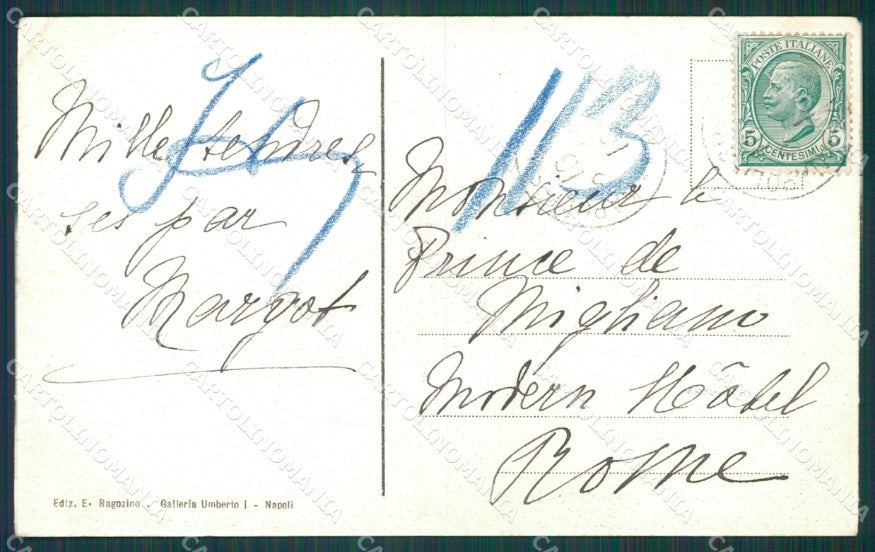 Mille tendres-
ses par
Margot
113
Monsieur le
Prince de
Migliano
Modern Hôtel
Rome
POSTE ITALIANE
5 5
CENTESIMI
Ediz. E. Ragozino - Galleria Umberto I - Napoli
CARTOLINOMANIA